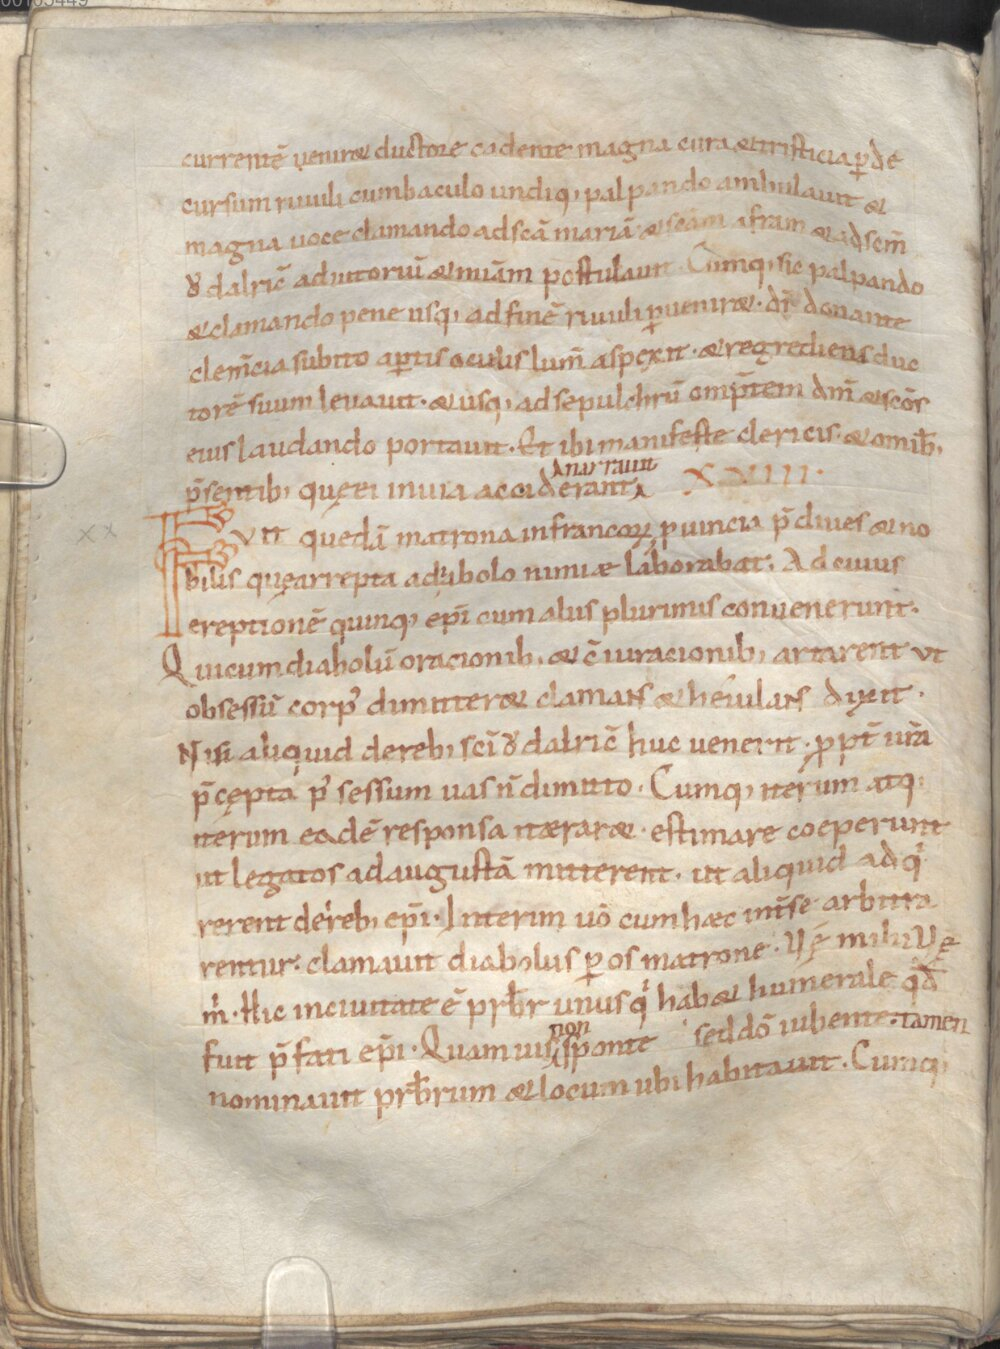 00103449
currentē uenir& ductore cadente magna cura & tristicia p̱ de
cursum riuuli cum baculo undiq; palpando ambulauit &
magna uoce clamando ad scā mariā & scām afram & ad scm̄
ȣdalric̄ adiutoriū & miām postulauit. Cumq; sic palpando
& clamando pene usq; ad finē riuuli p̱uenir&. dn̄i donante
clem̄cia subito ap̱tis oculis lum̄ aspexit. & regrediens duc
torē suum leuauit. & usq; ad sepulchrū omp̄tem dm̄ & scōs
eius laudando portauit. Et ibi manifeste clericis & omib;
p̄sentib; quę ei in uia acciderant narrauit XXVIII.
xx
Fuit quedā matrona in francorꝝ puincia p̄diues & no
bilis quę arrepta a diabolo nimiæ laborabat. Ad cuius
ereptionē quinq; ep̄i cum aliis plurimis conuenerunt.
Qui cum diabolū oracionib; & c̄iuracionib; artarent ut
obsessū corp᾽ dimitter& clamans & heiulans dixit.
Nisi aliquid de reb; sc̄i ȣdalric̄ huc uenerit. ppt̄ ur̄a
p̄cępta p᾽sessum uas n̄ dimitto. Cumq; iterum atq;
iterum eadē responsa iterar&. estimare coeperunt
ut legatos ad augustā mitterent. ut aliquid adq᾽
rerent de reb; ep̄i. Interim uō cum hæc int̄ se arbitra
rentur. clamauit diabolus p̱ os matrone. Uę mihi Uę
m̄. Hic in ciuitate ē prb̄r unus q᾽ hab& humerale qd̄
fuit p̄fati ep̄i. Quamuis non sponte sed dō iubente. tamen
nominauit prb̄rum & locum ubi habitauit. Cumq;